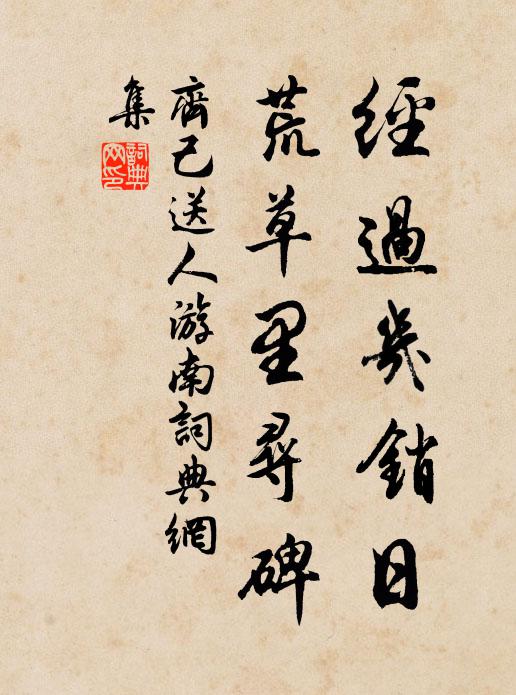 經過幾銷日
荒草里尋碑
齊己送人游南詞典網
集
詞典
网印